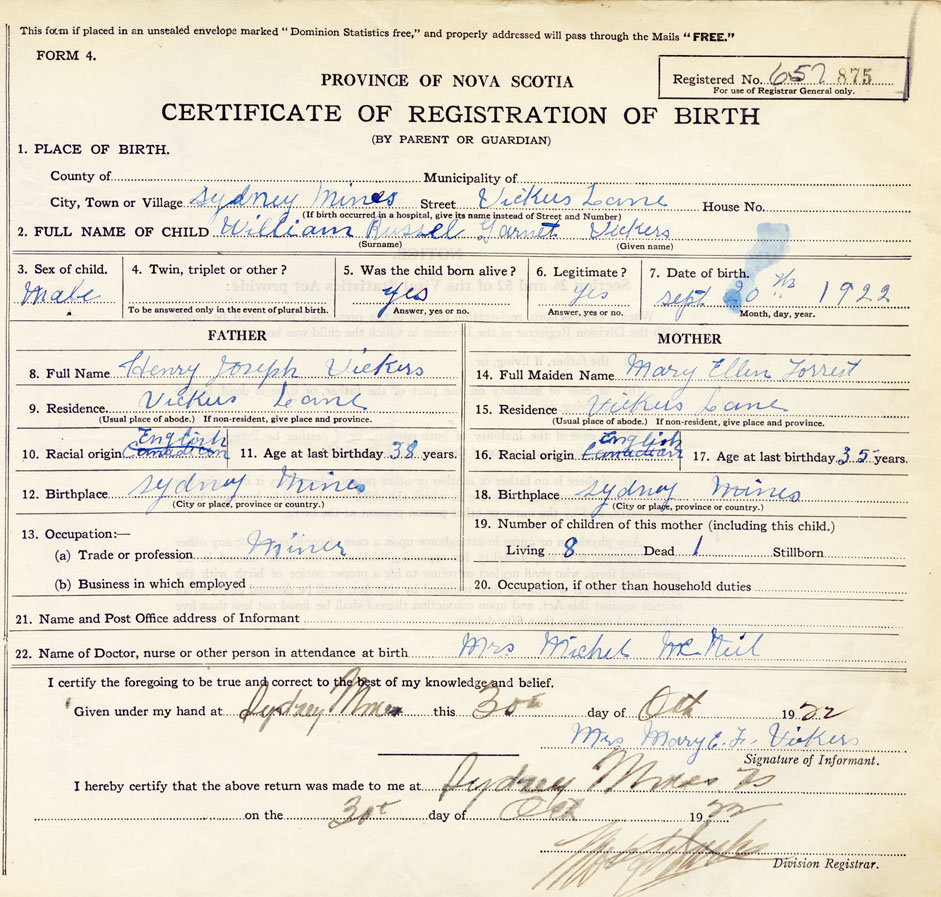 This form if placed in an unsealed envelope marked "Dominion Statistics free," and properly addressed will pass through the Mails "FREE."
FORM 4.
PROVINCE OF NOVA SCOTIA
Registered No. 657 875
For use of Registrar General only.
CERTIFICATE OF REGISTRATION OF BIRTH
(BY PARENT OR GUARDIAN)
1. PLACE OF BIRTH.
County of Municipality of
City, Town or Village Sydney Mines Street Vickers Lane House No.
(If birth occurred in a hospital, give its name instead of Street and Number)
2. FULL NAME OF CHILD William Russel Garnet Vickers
(Surname) (Given name)
3. Sex of child. 4. Twin, triplet or other? 5. Was the child born alive? 6. Legitimate? 7. Date of birth.
Male yes yes sept 1922
To be answered only in the event of plural birth. Answer, yes or no. Answer, yes or no. Month, day, year.
FATHER MOTHER
8. Full Name Henry Joseph Vickers 14. Full Maiden Name Mary Ellen Forrest
9. Residence. Vickers Lane 15. Residence Vickers Lane
(Usual place of abode.) If non-resident, give place and province. (Usual place of abode.) If non-resident, give place and province.
English English
10. Racial origin Canadian 11. Age at last birthday 38 years. 16. Racial origin Canadian 17. Age at last birthday 35 years.
12. Birthplace Sydney Mines 18. Birthplace Sydney Mines
(City or place, province or country.) (City or place, province or country.)
13. Occupation:— 19. Number of children of this mother (including this child.)
(a) Trade or profession Miner Living 8 Dead 1 Stillborn
(b) Business in which employed 20. Occupation, if other than household duties
21. Name and Post Office address of Informant
22. Name of Doctor, nurse or other person in attendance at birth Mrs Michel McNeil
I certify the foregoing to be true and correct to the best of my knowledge and belief.
Given under my hand at Sydney Mines this 30th day of Oct 1922
Mrs Mary E. F. Vickers
Signature of Informant.
I hereby certify that the above return was made to me at Sydney Mines
on the 30th day of Oct 1922
Division Registrar.